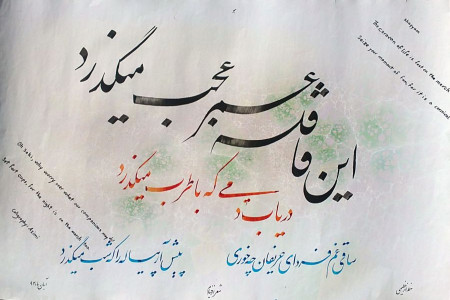 Khayyam
The Caravan of life is fast on the march
Seize your moment of fun, for it is a
این قافله عمر عجب میگذرد
دریاب دمی که با طرب میگذرد
ساقی غم فردای حریفان چه خوری
پیش آر پیاله را که شب میگذرد
Oh Saki, why worry over what our companions
fast cups, for the night is on the march
(Calligraphy: Azimi)